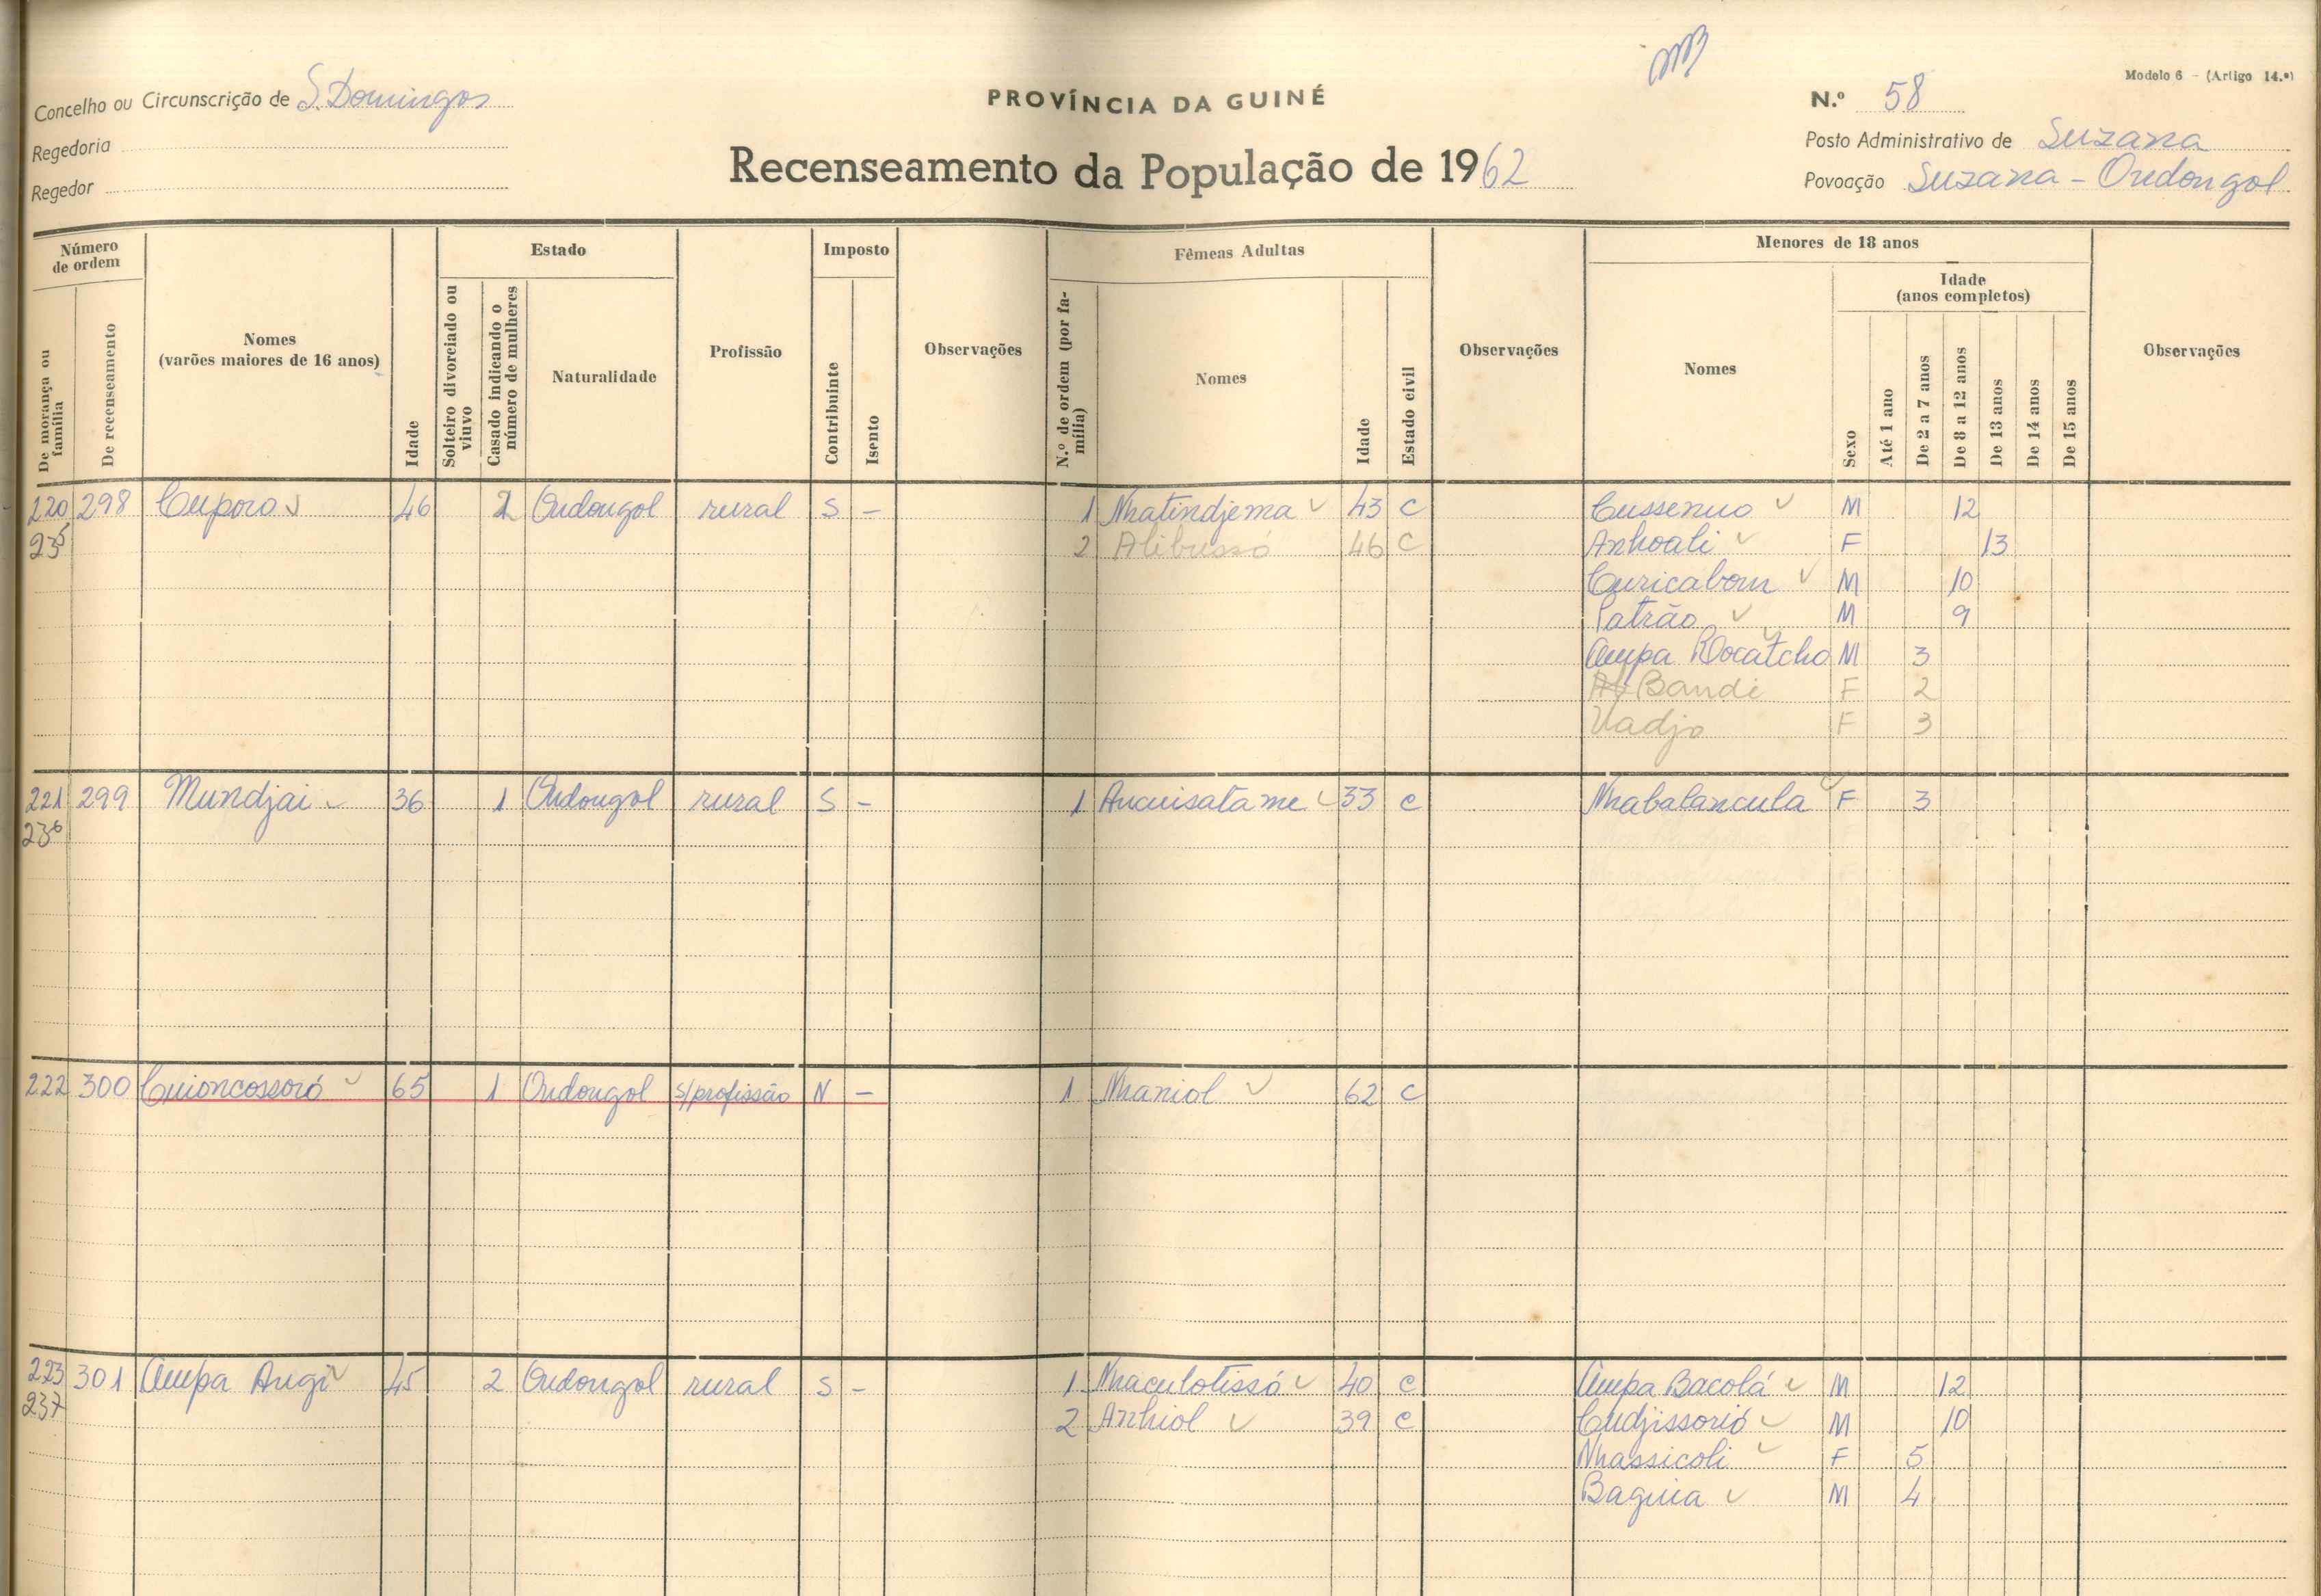 Modelo 6 - (Artigo 14.º)
Concelho ou Circunscrição de S. Domingos
PROVÍNCIA DA GUINÉ
N.º 58
Regedoria
Posto Administrativo de Suzana
Recenseamento da População de 1962
Regedor
Povoação Suzana - Ondongol
Número de ordem
Estado
Imposto
Fêmeas Adultas
Menores de 18 anos
Idade (anos completos)
De morança ou família
De recenseamento
Nomes (varões maiores de 16 anos)
Idade
Solteiro divorciado ou viuvo
Casado indicando o número de mulheres
Naturalidade
Profissão
Contribuinte
Isento
Observações
N.º de ordem (por família)
Nomes
Idade
Estado civil
Observações
Nomes
Sexo
Até 1 ano
De 2 a 7 anos
De 8 a 12 anos
De 13 anos
De 14 anos
De 15 anos
Observações
220 298 Cuporo 46 2 Ondongol rural S - 1 Nhatindjema 43 C Cussenuo M 12
235 2 Alibussó 46 C Anhoali F 13
Curicabom M 10
Patrão M 9
Ampa Bocatcho M 3
Bandi F 2
Vadjo F 3
221 299 Mundjai 36 1 Ondongol rural S - 1 Ancuisatame 33 C Nhabalancula F 3
236
222 300 Cuioncossoró 65 1 Ondongol s/profissão N - 1 Nhaniol 62 C
223 301 Ampa Augi 45 2 Ondongol rural S - 1 Nhaculotissó 40 C Ampa Bacolá M 12
237 2 Anhiol 39 C Cudjissorió M 10
Nhassicoli F 5
Baguia M 4